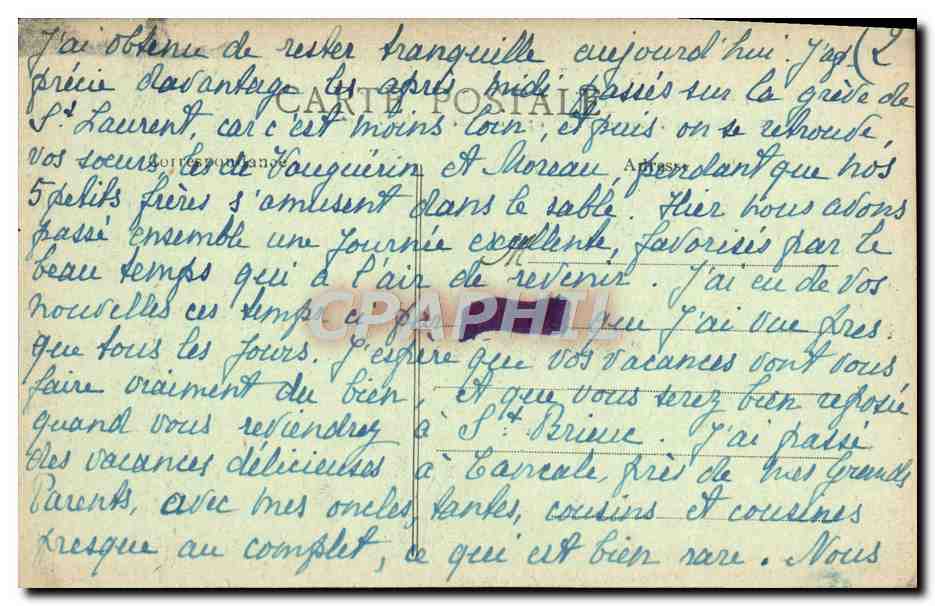 J'ai obtenu de rester tranquille aujourd'hui. J'ap- (2
précie davantage les après midi passés sur la grève de
CARTE POSTALE
St Laurent, car c'est moins loin, et puis on se retrouve,
Correspondance
Adresse
vos soeurs, les de Vauguérin et Moreau, pendant que nos
5 petits frères s'amusent dans le sable. Hier nous avons
passé ensemble une journée excellente, favorisés par le
beau temps qui a l'air de revenir. J'ai eu de vos
nouvelles ces temps ci par que j'ai vue pres-
CPAPHIL
que tous les jours. J'espère que vos vacances vont vous
faire vraiment du bien, et que vous serez bien reposée
quand vous reviendrez à St Brieuc. J'ai passé
des vacances délicieuses à Cancale, près de mes Grands
Parents, avec mes oncles, tantes, cousins et cousines
presque au complet, ce qui est bien rare. Nous